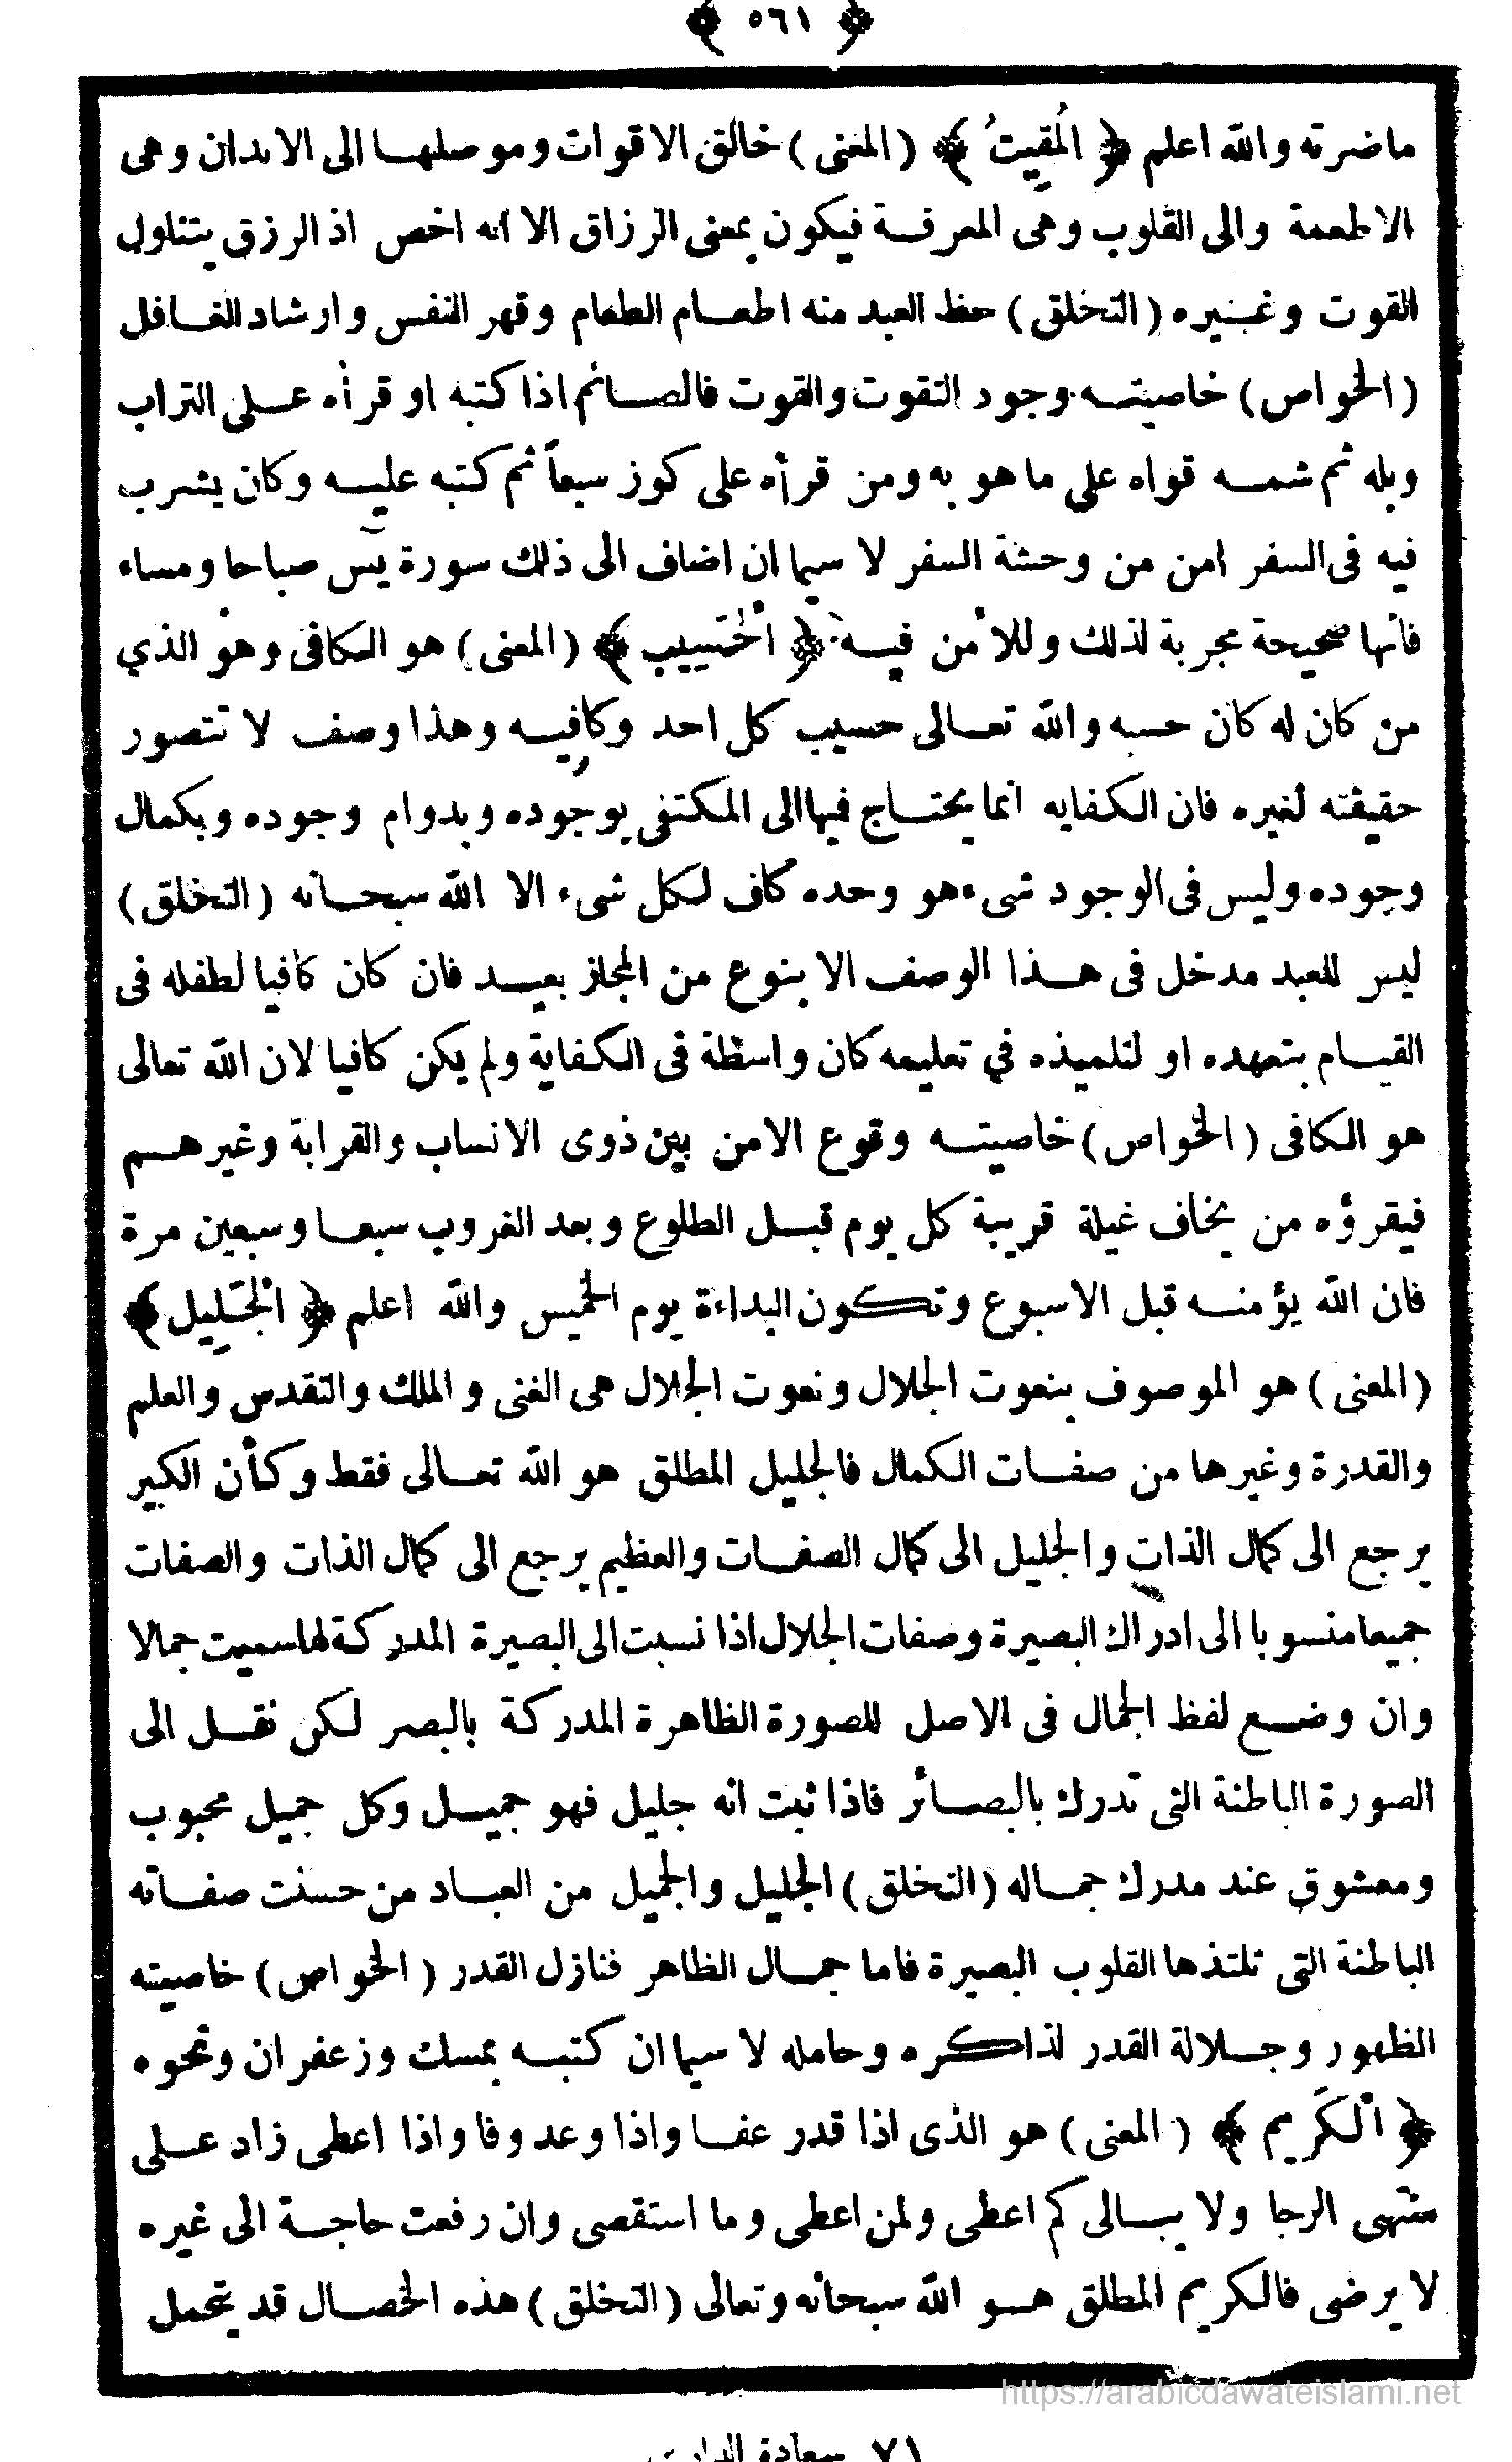 ﴿ ٥٦١ ﴾
ماضرته والله اعلم ﴿ المُقِيتُ ﴾ (المعنى) خالق الاقوات وموصلها الى الابدان وهى
الاطعمة والى القلوب وهى المعرفة فيكون بمعنى الرزاق الا انه اخص اذ الرزق يتناول
القوت وغيره (التخلق) حظ العبد منه اطعام الطعام وقهر النفس وارشاد الغافل
(الخواص) خاصيته وجود التقوت والقوت فالصائم اذا كتبه او قرأه على التراب
وبله ثم شمه قواه على ما هو به ومن قرأه على كوز سبعاً ثم كتبه عليه وكان يشرب
فيه فى السفر امن من وحشة السفر لا سيما ان اضاف الى ذلك سورة يٓس صباحا ومساء
فانها صحيحة مجربة لذلك وللأمن فيه ﴿ اَلْحَسِيب ﴾ (المعنى) هو الكافى وهو الذي
من كان له كان حسبه والله تعالى حسيب كل احد وكافيه وهذا وصف لا تتصور
حقيقته لغيره فان الكفايه انما يحتاج فيها الى المكتفى بوجوده وبدوام وجوده وبكمال
وجوده وليس فى الوجود شىء هو وحده كاف لكل شىء الا الله سبحانه (التخلق)
ليس للعبد مدخل فى هذا الوصف الا بنوع من المجاز بعيد فان كان كافيا لطفله فى
القيام بتعهده او لتلميذه في تعليمه كان واسطة فى الكفاية ولم يكن كافيا لان الله تعالى
هو الكافى (الخواص) خاصيته وقوع الامن بين ذوى الانساب والقرابة وغيرهم
فيقرؤه من يخاف غيلة قريبة كل يوم قبل الطلوع وبعد الغروب سبعا وسبعين مرة
فان الله يؤمنه قبل الاسبوع وتكون البداءة يوم الخميس والله اعلم ﴿ اَلْجَلِيل ﴾
(المعنى) هو الموصوف بنعوت الجلال ونعوت الجلال هى الغنى والملك والتقدس والعلم
والقدرة وغيرها من صفات الكمال فالجليل المطلق هو الله تعالى فقط وكأن الكبير
يرجع الى كمال الذات والجليل الى كمال الصفات والعظيم يرجع الى كمال الذات والصفات
جميعا منسوبا الى ادراك البصيرة وصفات الجلال اذا نسبت الى البصيرة المدركة لها سميت جمالا
وان وضع لفظ الجمال فى الاصل للصورة الظاهرة المدركة بالبصر لكن نقل الى
الصورة الباطنة التى تدرك بالبصائر فاذا ثبت انه جليل فهو جميل وكل جميل محبوب
ومعشوق عند مدرك جماله (التخلق) الجليل والجميل من العباد من حسنت صفاته
الباطنة التى تلتذها القلوب البصيرة فاما جمال الظاهر فنازل القدر (الخواص) خاصيته
الظهور وجلالة القدر لذاكره وحامله لا سيما ان كتبه بمسك وزعفران ونحوه
﴿ اَلْكَرِيم ﴾ (المعنى) هو الذى اذا قدر عفا واذا وعد وفا واذا اعطى زاد على
منتهى الرجا ولا يبالى كم اعطى ولمن اعطى وما استقصى وان رفعت حاجة الى غيره
لا يرضى فالكريم المطلق هو الله سبحانه وتعالى (التخلق) هذه الخصال قد تحمل
https://arabicdawateislami.net
٧١ سعادة الدارين